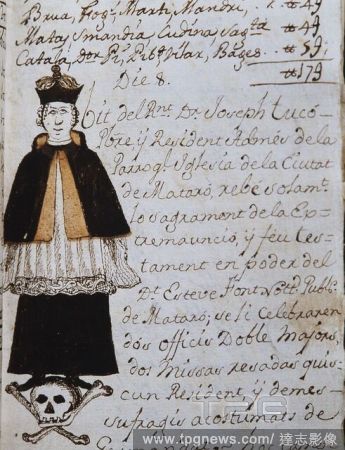 Brua, Prog. Martí, Nandri, # 49
Mata, Smandia, Cudina Sag.ta # 49
Catalá, Dor Pi, Pit.º Vilar, Bages. # 59.
# 179
Die 8.
bit del R.nt D.r Joseph Luco
Pbre y Resident Adnés de la
Parroq.l Iglesia de la Ciutat
de Mataró, rebé solam.t
lo sagrament de la Ex-
tremaunció, y feu tes-
tament en poder del
D.r Esteve Font Nott. Publi.
de Mataró; se li celebraren
dos officis Doble majors,
dos missas resadas quis-
cun Resident, y demes
sufragis acostumats de
TPG
www.tpgnews.com / 達志影像